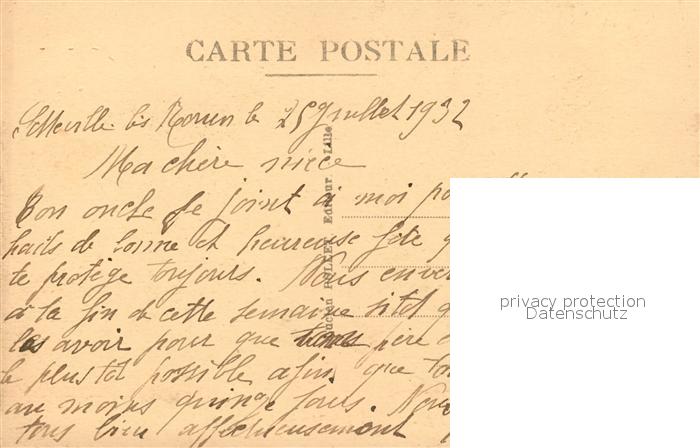 CARTE POSTALE
Sotteville lès Rouen le 25 Juillet 1932
Ma chère niece
Ton oncle se joint à moi po
haits de bonne et heureuse fête q
te protège toujours. Nous enver
à la fin de cette semaine sitot q
les avoir pour que père e
le plus tot possible afin que to
au moins quinze jours. Nous
tous bien affectueusement
Lucien POLLET, Editeur, Lille
privacy protection
Datenschutz